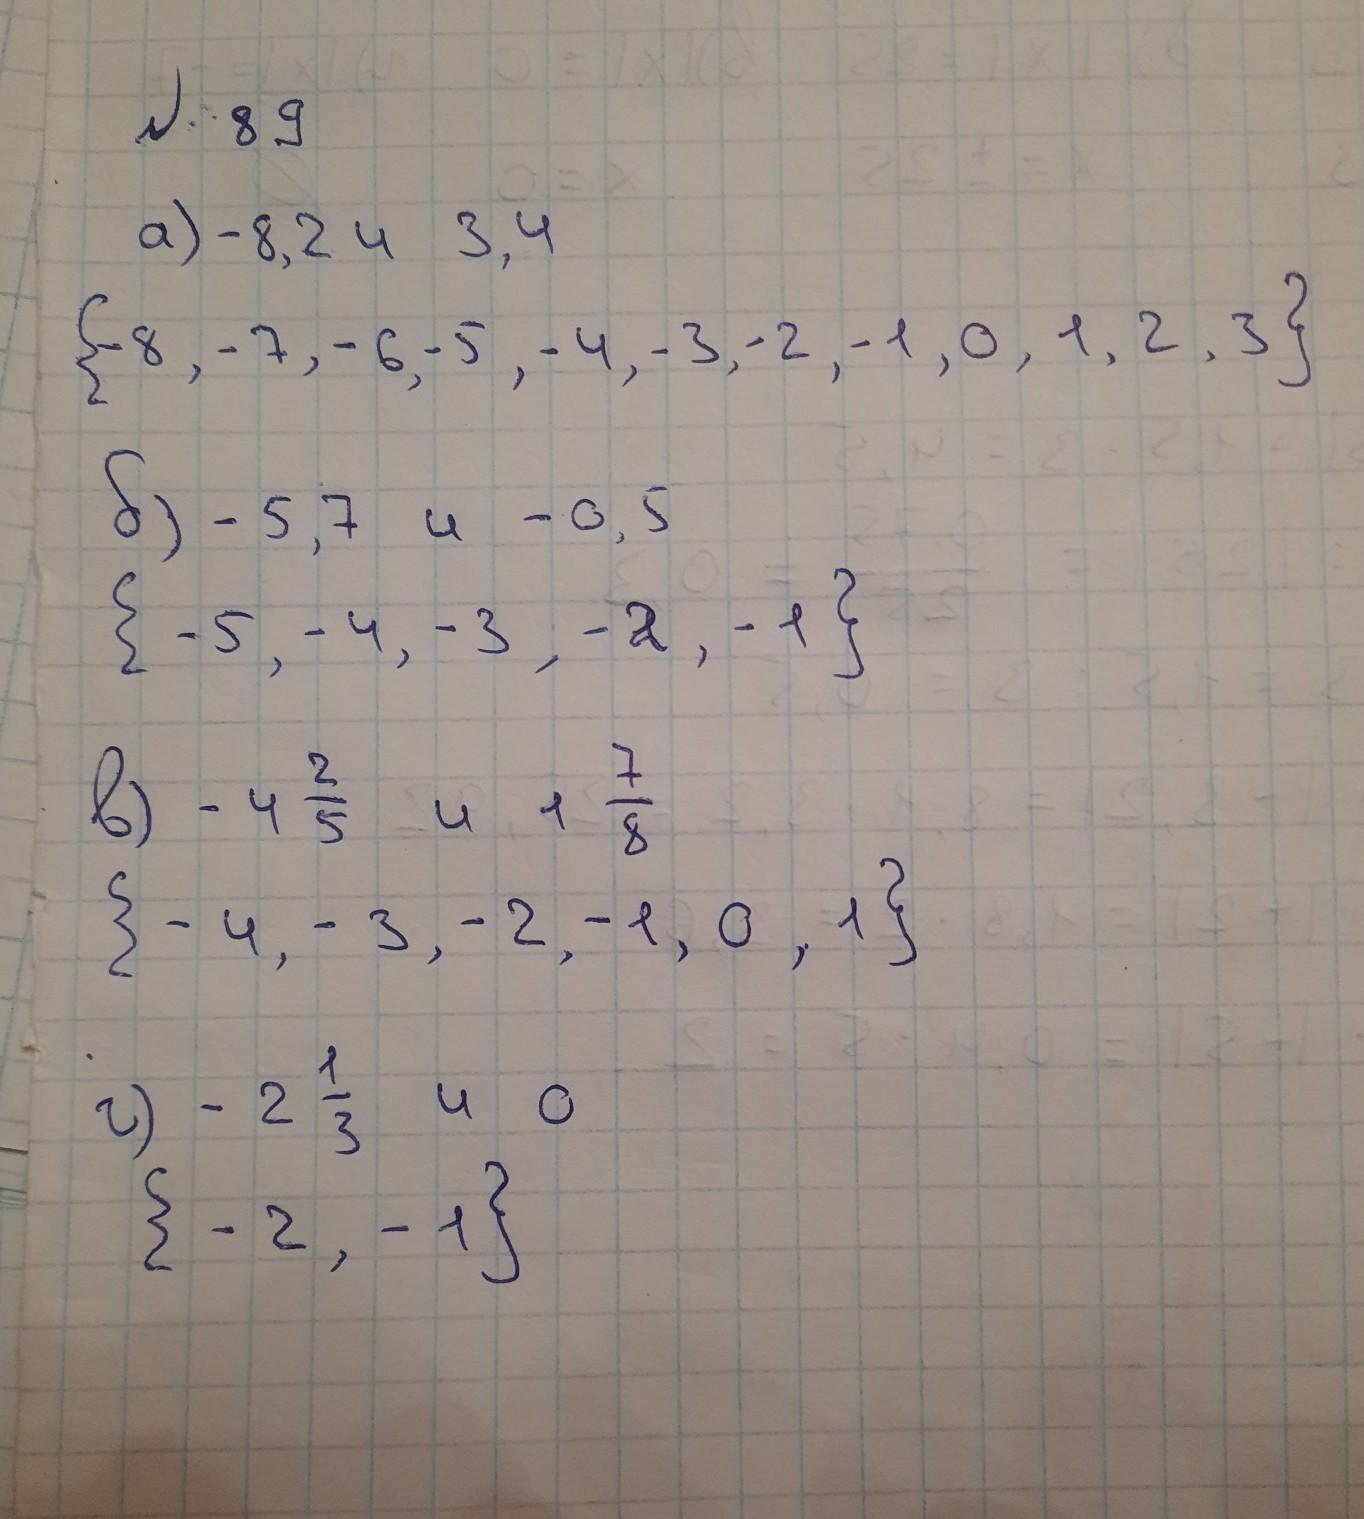 № 89
а) -8,2 и 3,4
{-8, -7, -6, -5, -4, -3, -2, -1, 0, 1, 2, 3}
б) -5,7 и -0,5
{-5, -4, -3, -2, -1}
в) -4 2/5 и 1 7/8
{-4, -3, -2, -1, 0, 1}
г) -2 1/3 и 0
{-2, -1}